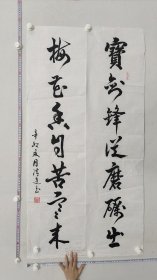 寳劍鋒從磨礪出
梅花香自苦寒來
辛卯夏月